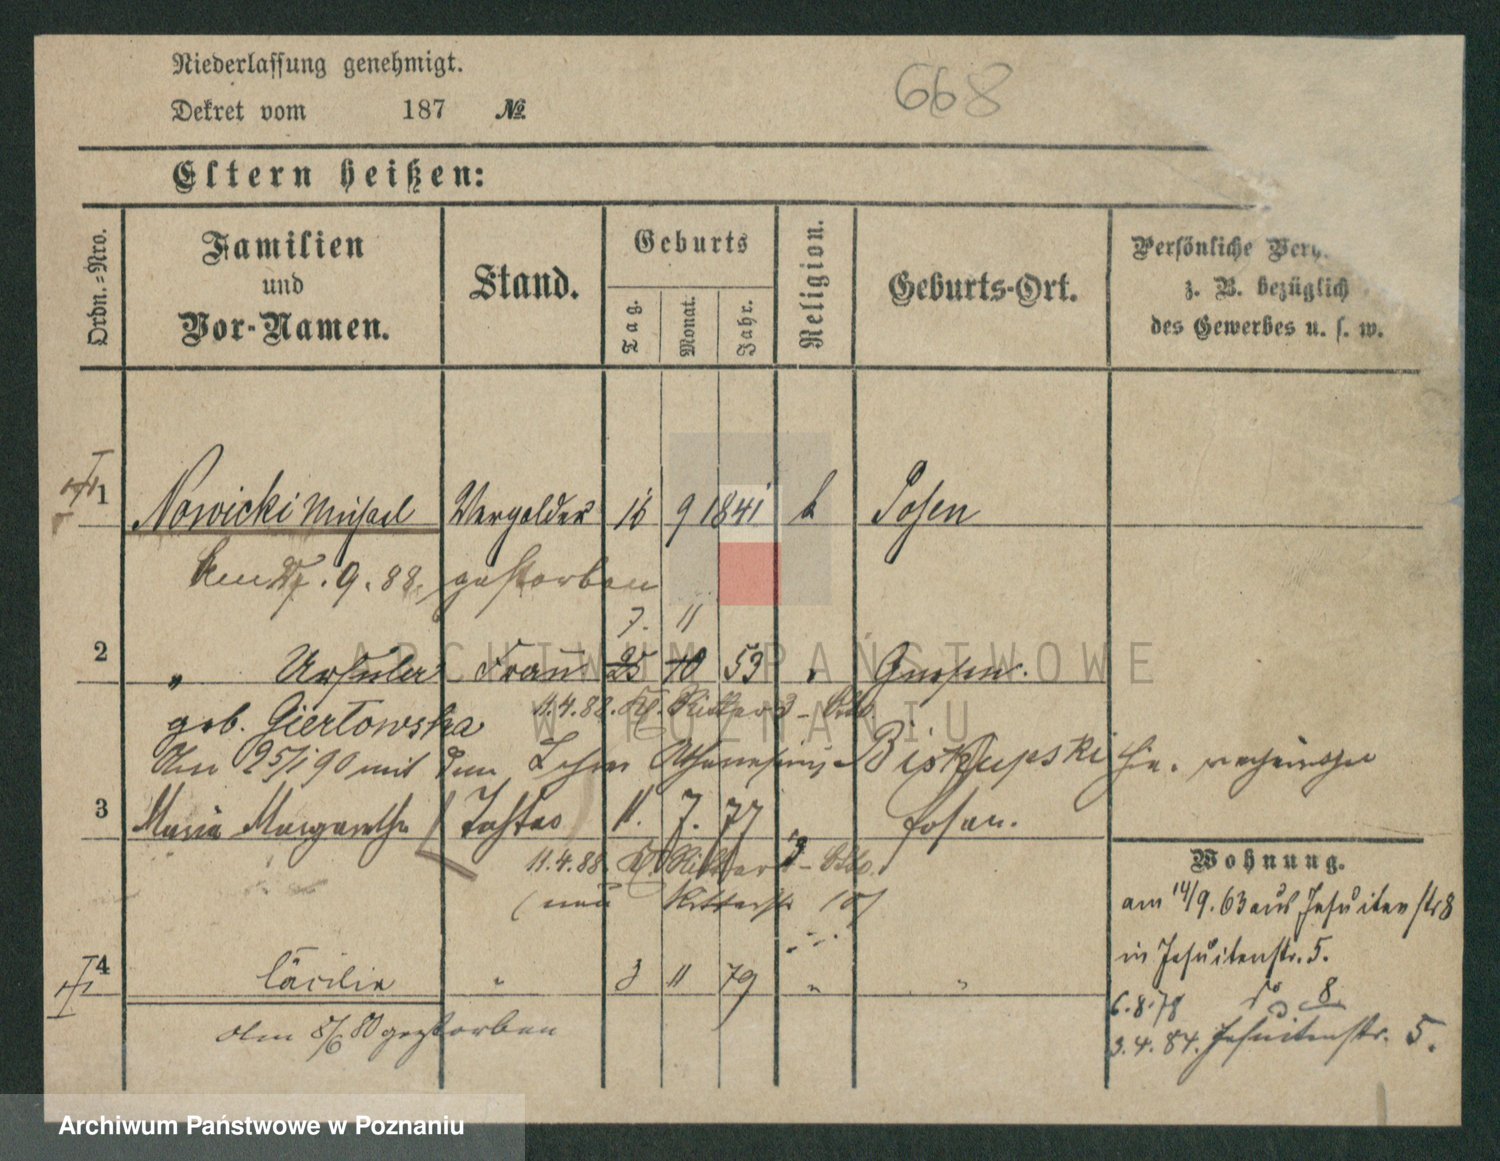 Niederlassung genehmigt.
668
Dekret vom 187 №
Eltern heißen:
Ordn.=Nro.
Familien und Vor-Namen.
Stand.
Geburts
Tag. Monat. Jahr.
Religion.
Geburts-Ort.
Persönliche
z. B. bezüglich
des Gewerbes u. s. w.
1 Nowicki Michael Vergolder 9 1841 k Posen
9. 88. gestorben
7. 11
2 " Ursula Frau 25 10 53 Gnesen.
geb. Giertowska 11.4.88. Ritter 3
25/1 90 mit dem Biskupski
3 Maria Margarethe Tochter 11. 7. 77 Posen.
11.4.88. Ritter 3
(neu Ritterstr 10)
4 Cäcilie " 3 11 79 " "
Am 8/6 80 gestorben
Wohnung.
am 14/9. 63 aus Jesuitenstr 8
in Jesuitenstr. 5.
6.8.78 do 8
3.4.84. Jesuitenstr. 5.
ARCHIWUM PAŃSTWOWE
W POZNANIU
Archiwum Państwowe w Poznaniu